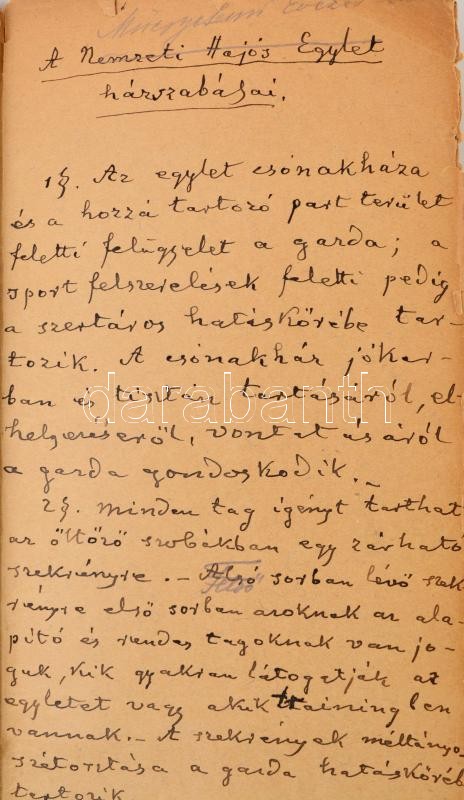 A Nemzeti Hajós Egylet
házszabásai.
1§. Az egylet csónakháza
és a hozzá tartozó part terület
feletti felügyelet a garda; a
sport felszerelések feletti pedig
a szertáros hatáskörébe tar-
tozik. A csónakház jókar-
ban és tisztán tartásáról, el-
helyezéséről, vontatásáról
a garda gondoskodik. –
2§. Minden tag igényt tarthat
az öltöző szobákban egy zárható
szekrényre. – Alsó sorban lévő szek-
Felső
rényre első sorban azoknak az ala-
pító és rendes tagoknak van jo-
guk, kik gyakran látogatják az
egyletet vagy akik training ben
vannak. – A szekrények méltányos
szétosztása a garda hatáskörébe
tartozik
darabanth